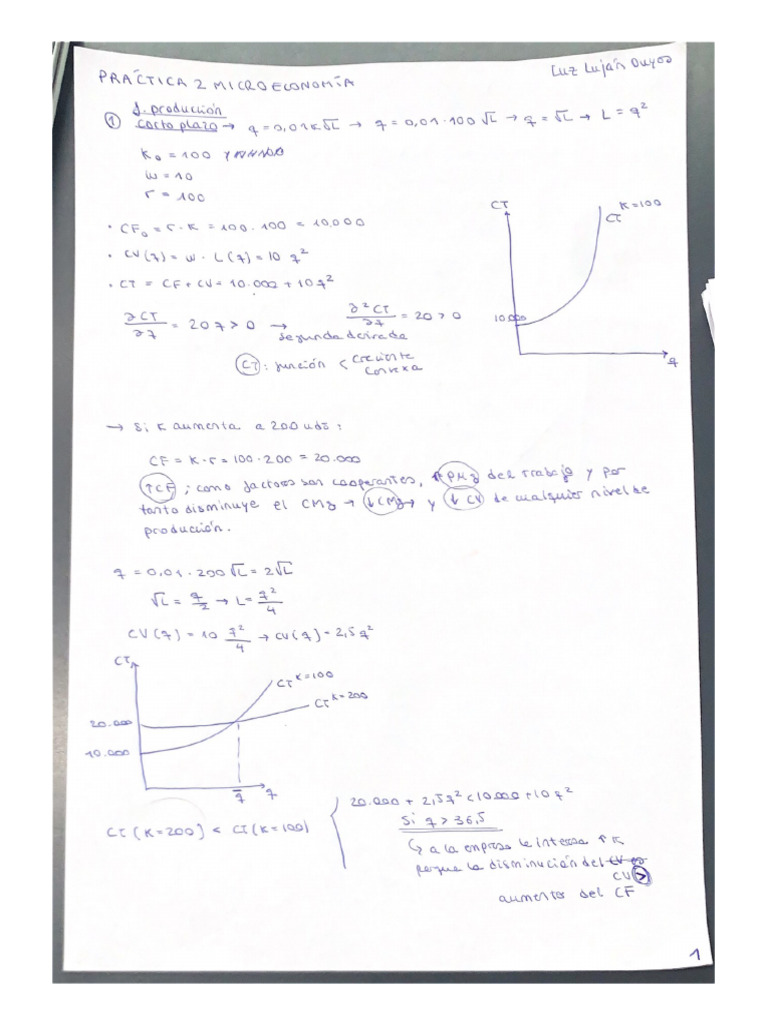 PRÁCTICA 2 MICROECONOMÍA
Luz Luján Duyos
① f. producción
corto plazo → q = 0,01K√L → q = 0,01·100√L → q = √L → L = q²
K₀ = 100
w = 10
r = 100
• CF₀ = r·K = 100·100 = 10,000
• CV(q) = w·L(q) = 10 q²
• CT = CF + CV = 10.000 + 10q²
∂CT/∂q = 20q > 0 → segunda derivada ∂²CT/∂q = 20 > 0
CT : función < creciente
convexa
CT
CT K=100
10.000
q
→ Si K aumenta a 200 uds:
CF = K·r = 100·200 = 20.000
↑CF ; como factores son cooperantes, ↑PMg del trabajo y por
tanto disminuye el CMg → ↓CMg → y ↓CV de cualquier nivel de
producción.
q = 0,01·200√L = 2√L
√L = q/2 → L = q²/4
CV(q) = 10 q²/4 → CV(q) = 2,5q²
CT
CT K=100
CT K=200
20.000
10.000
q̄
q
CT(K=200) < CT(K=100)
20.000 + 2,5q² < 10.000 + 10q²
Si q > 36,5
↳ a la empresa le interesa ↑K
porque la disminución del
CV >
aumento del CF
1